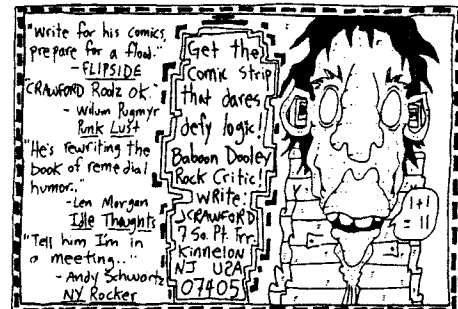 "Write for his comics,
prepare for a flood."
- FLIPSIDE
"CRAWFORD Roolz OK."
- Wilum Pugmyr
Punk Lust
"He's rewriting the
book of remedial
humor.."
- Len Morgan
Idle Thoughts
"Tell him I'm in
a meeting..."
- Andy Schwartz
NY Rocker
Get the
comic strip
that dares
defy logic!
Baboon Dooley
Rock Critic!
write:
JCRAWFORD
7 So. Pt. Trr.
Kinnelon
NJ USA
07405
1+1
= 11